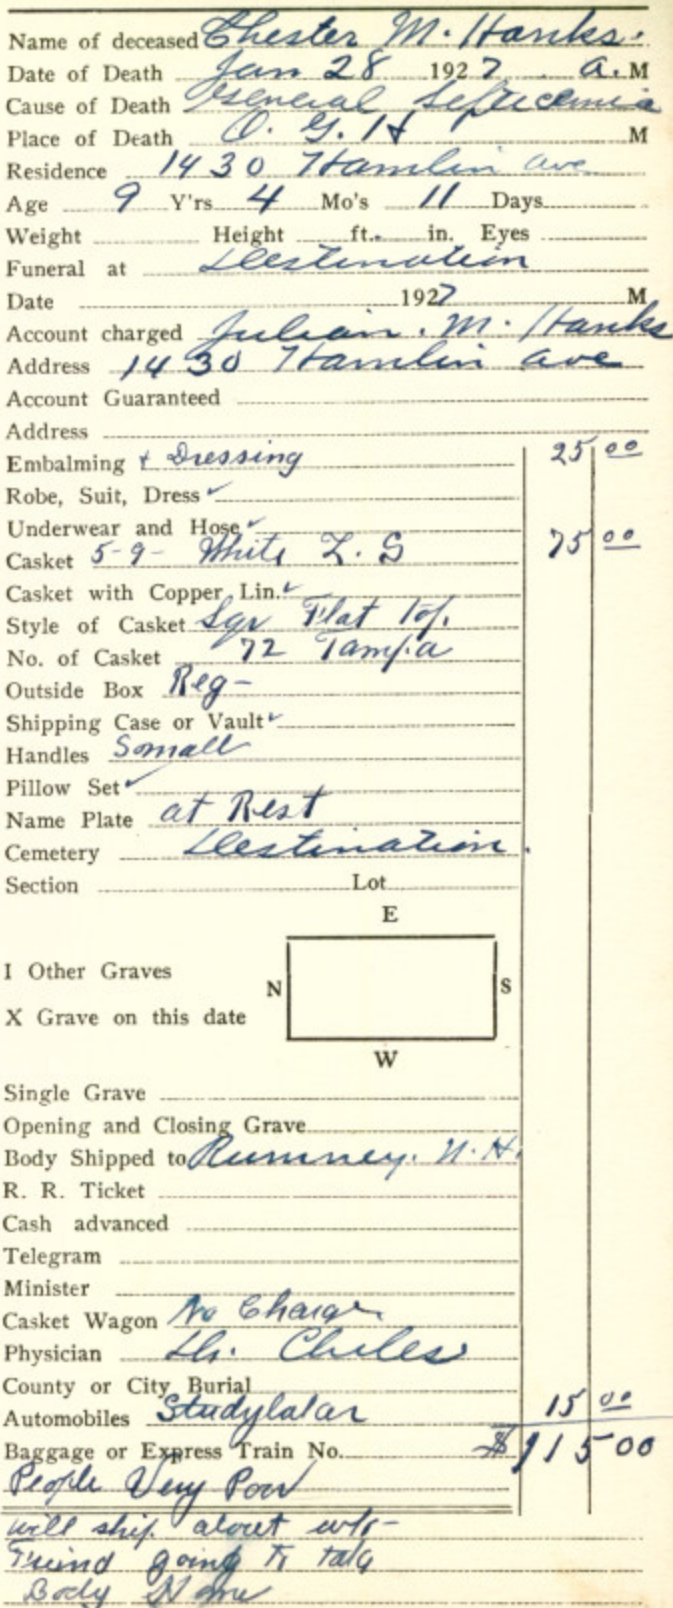 Name of deceased Chester M. Hanks.
Date of Death Jan 28 1927 a. M
Cause of Death General Septicemia
Place of Death O. G. H M
Residence 1430 Hamlin ave
Age 9 Y'rs 4 Mo's 11 Days
Weight Height ft. in. Eyes
Funeral at Destination
Date 1927 M
Account charged Julian. M. Hanks
Address 1430 Hamlin ave
Account Guaranteed
Address
Embalming + Dressing 25 00
Robe, Suit, Dress ✓
Underwear and Hose ✓
Casket 5-9- White L. S 75 00
Casket with Copper Lin. ✓
Style of Casket Sqr Flat Top.
No. of Casket 72 Tampa
Outside Box Reg-
Shipping Case or Vault ✓
Handles Small
Pillow Set ✓
Name Plate at Rest
Cemetery Destination.
Section Lot
E
I Other Graves
N S
X Grave on this date
W
Single Grave
Opening and Closing Grave
Body Shipped to Rumney. N. H.
R. R. Ticket
Cash advanced
Telegram
Minister
Casket Wagon No Charge
Physician Dr. Chiles
County or City Burial
Automobiles 15 00
Baggage or Express Train No. $115 00
People Very Poor
will ship about
Friend going to take
Body Home